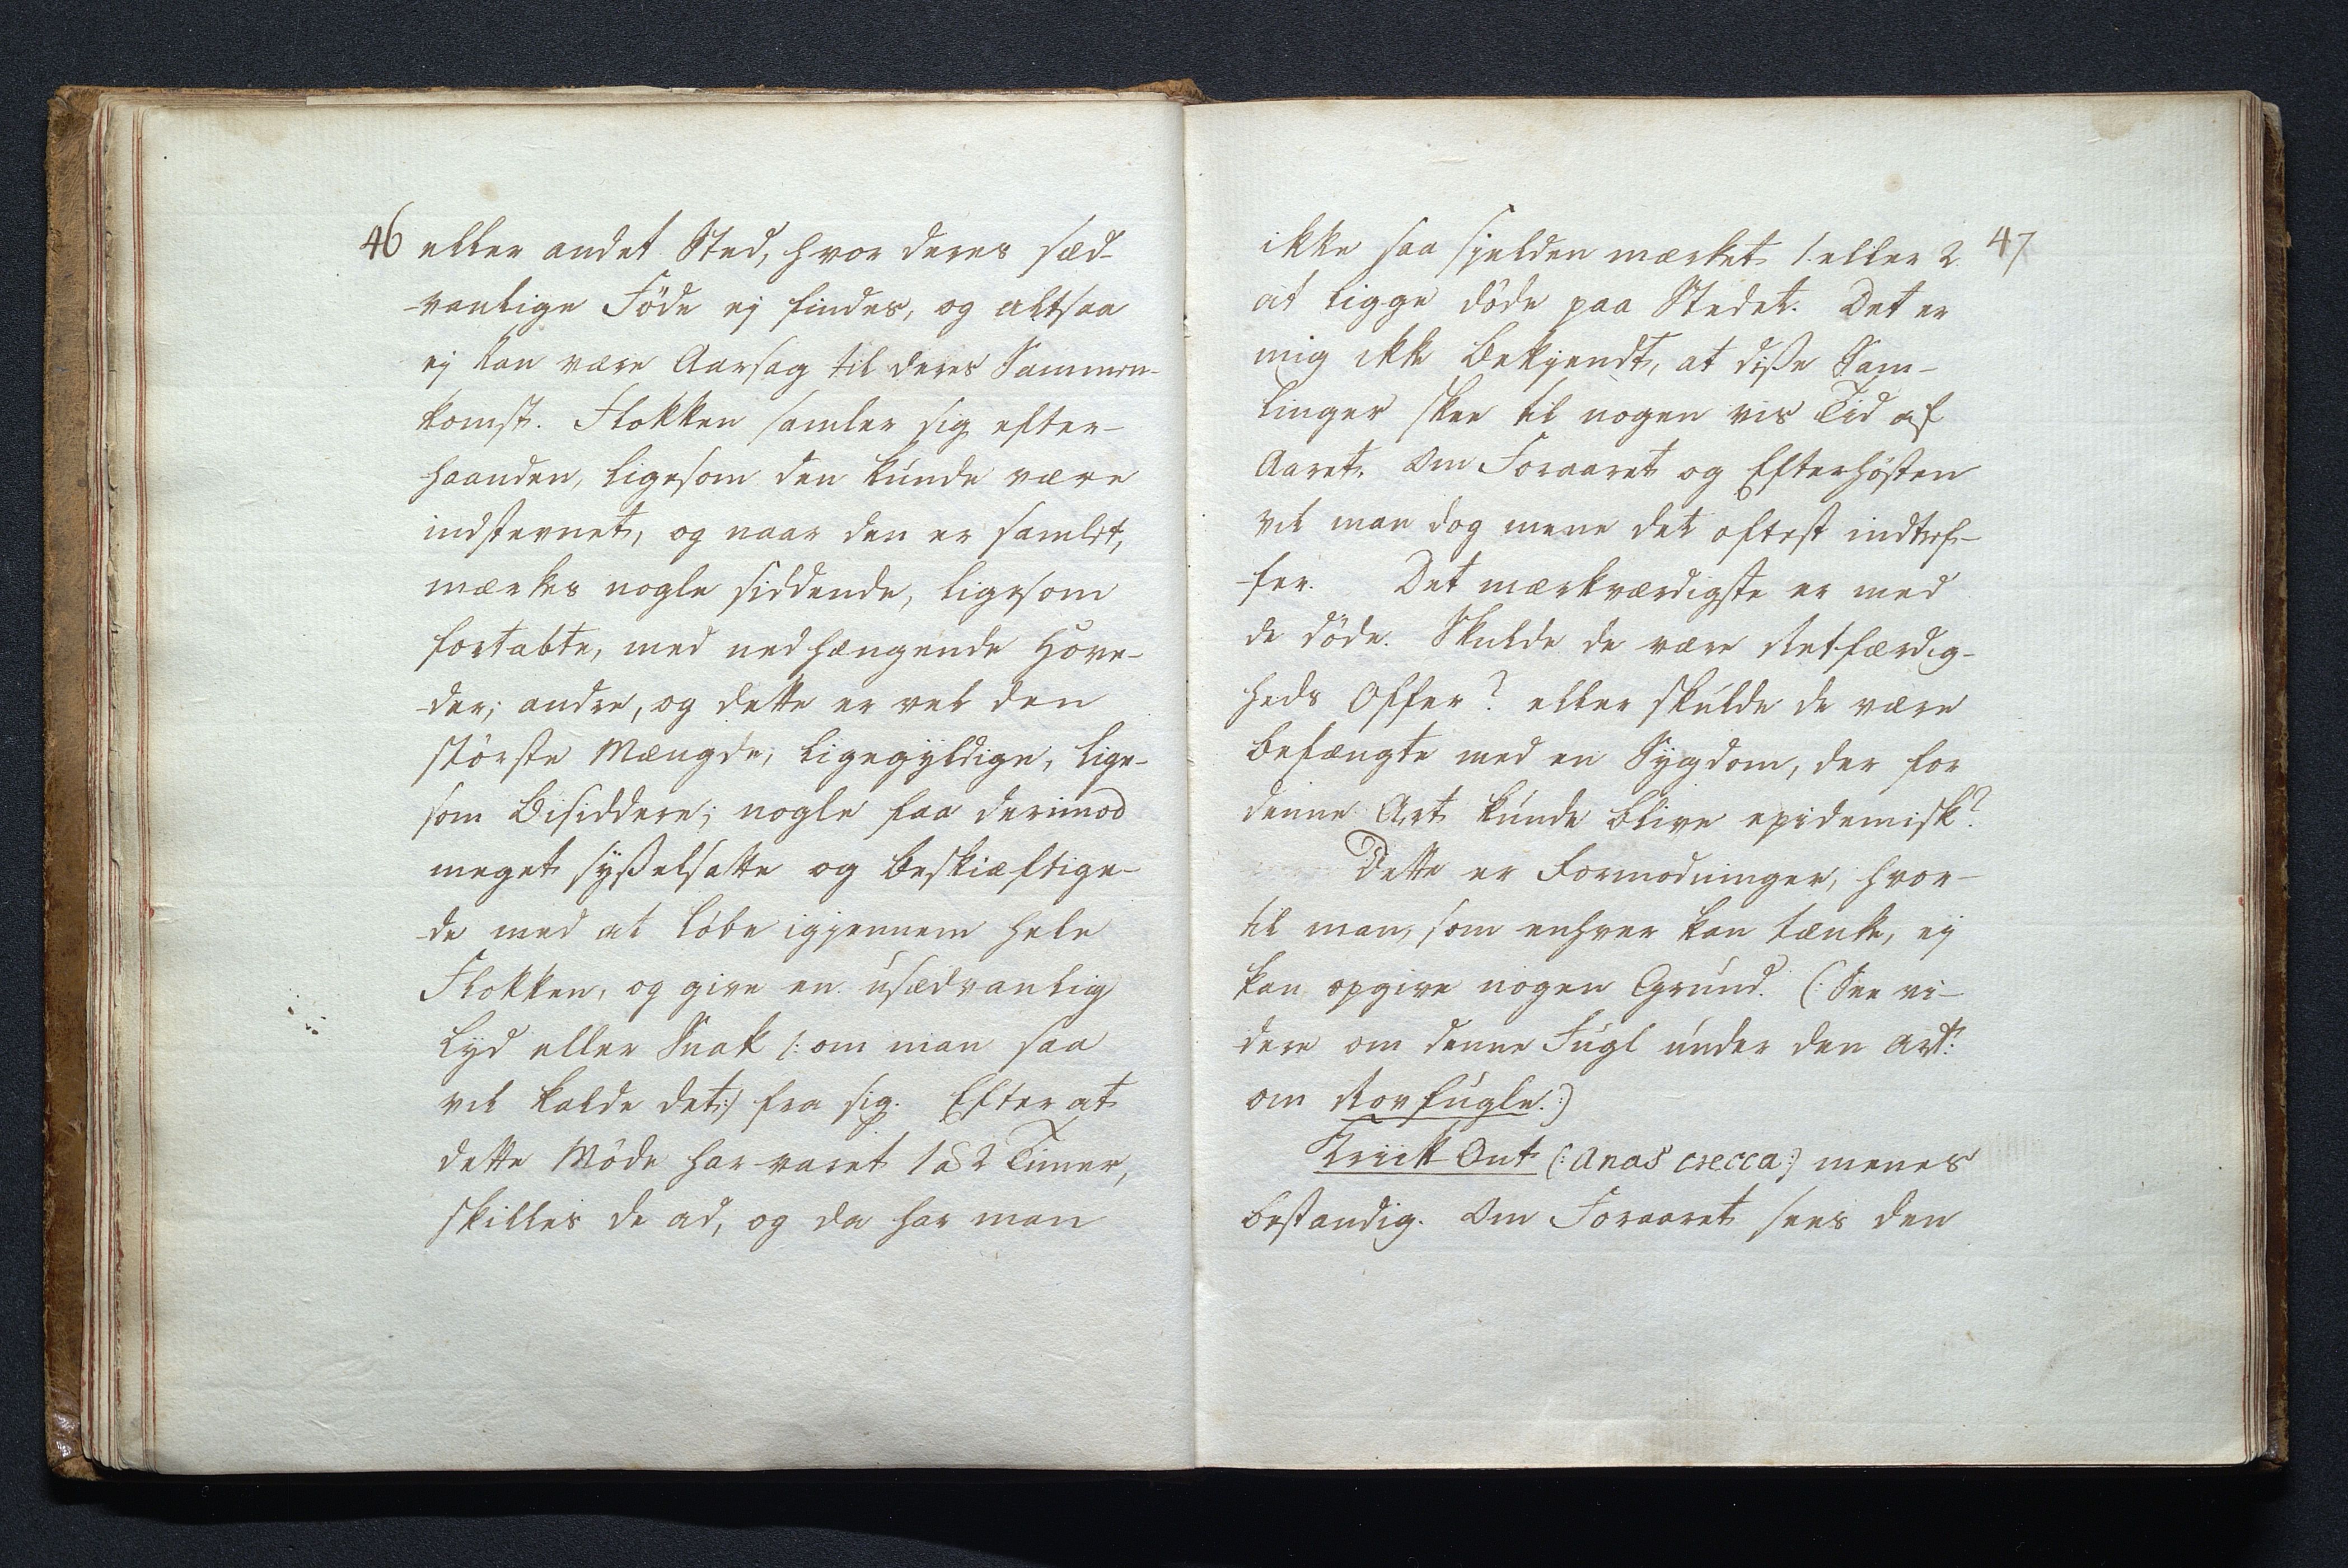 46
eller andet Sted, hvor deres sæd-
-vanlige Föde ej findes, og altsaa
ej kan være Aarsag til deres Sammen-
komst. Flokken samler sig efter-
haanden, ligesom den kunde være
indstevnet, og naar den er samlet,
mærkes nogle siddende, ligesom
fortabte, med nedhængende Hove-
-der; andre, og dette er vel den
störste Mængde, ligegyldige, lige-
som Bisiddere; nogle faa derimod
meget sysselsatte og beskiæftige-
-de med at löbe igjennem hele
Flokken, og give en usædvanlig
Lyd eller Snak /: om man saa
vil kalde det :/ fra sig. Efter at
dette Möde har varet 1 a 2 Timer,
skilles de ad, og da har man
47
ikke saa sjelden mærket 1. eller 2.
at ligge döde paa Stedet. Det er
mig ikke bekjendt, at disse Sam-
linger skee til nogen vis Tid af
Aaret. Om Foraaret og Efterhösten
vil man dog mene det oftest indtref-
-fer. Det mærkværdigste er med
de döde. Skulde de være Retfærdig-
heds Offer? eller skulde de være
befængte med en Sygdom, der for
denne Art kunde blive epidemisk?
Dette er Formodninger, hvor-
til man, som enhver kan tænke, ej
kan opgive nogen Grund. (: See vi-
dere om denne Fugl under den Art:
om Rovfugle. :)
Krick And (: Anas crecca :) menes
bestandig. Om Foraaret sees den